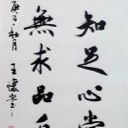 知足心常
無求品自
庚子秋月
王懷